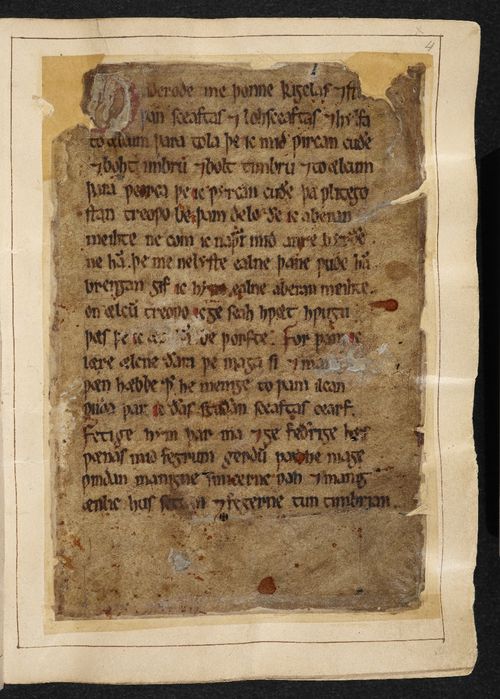 Gaderode me þonne kigclas ⁊ stu
þan sceaftas ⁊ lohsceaftas ⁊ hylfa
to ælcum þara tola þe ic mid ƿircan cuðe
⁊ bohtimbrū ⁊ bolt timbrū ⁊ to ælcum
þara ƿeorca þe ic ƿyrcan cuðe þa ƿlitego
stan treoƿo be þam dele ðe ic aberan
meihte ne com ic naþer mid anre byrðene
hā þe me ne lyste ealne þane ƿude hā
brengan gif ic hyne ealne aberan meihte.
on ælcū treoƿo ic geseah hƿæt hƿugu
þæs þe ic æt hā be þorfte. For þam ic
lære ælcne ðara þe maga si ⁊ manigne
ƿæn hæbbe ꝥ he menige to þam ilcan
ƿuda þar ic ðas stuðan sceaftas cearf.
Fetige hym þar ma ⁊ ge feðrige hys
ƿænas mid fegrum gerdū þat he mage
ƿindan manigne smicerne ƿah ⁊ manig
ænlic hus settan ⁊ fegerne tun timbrian
4